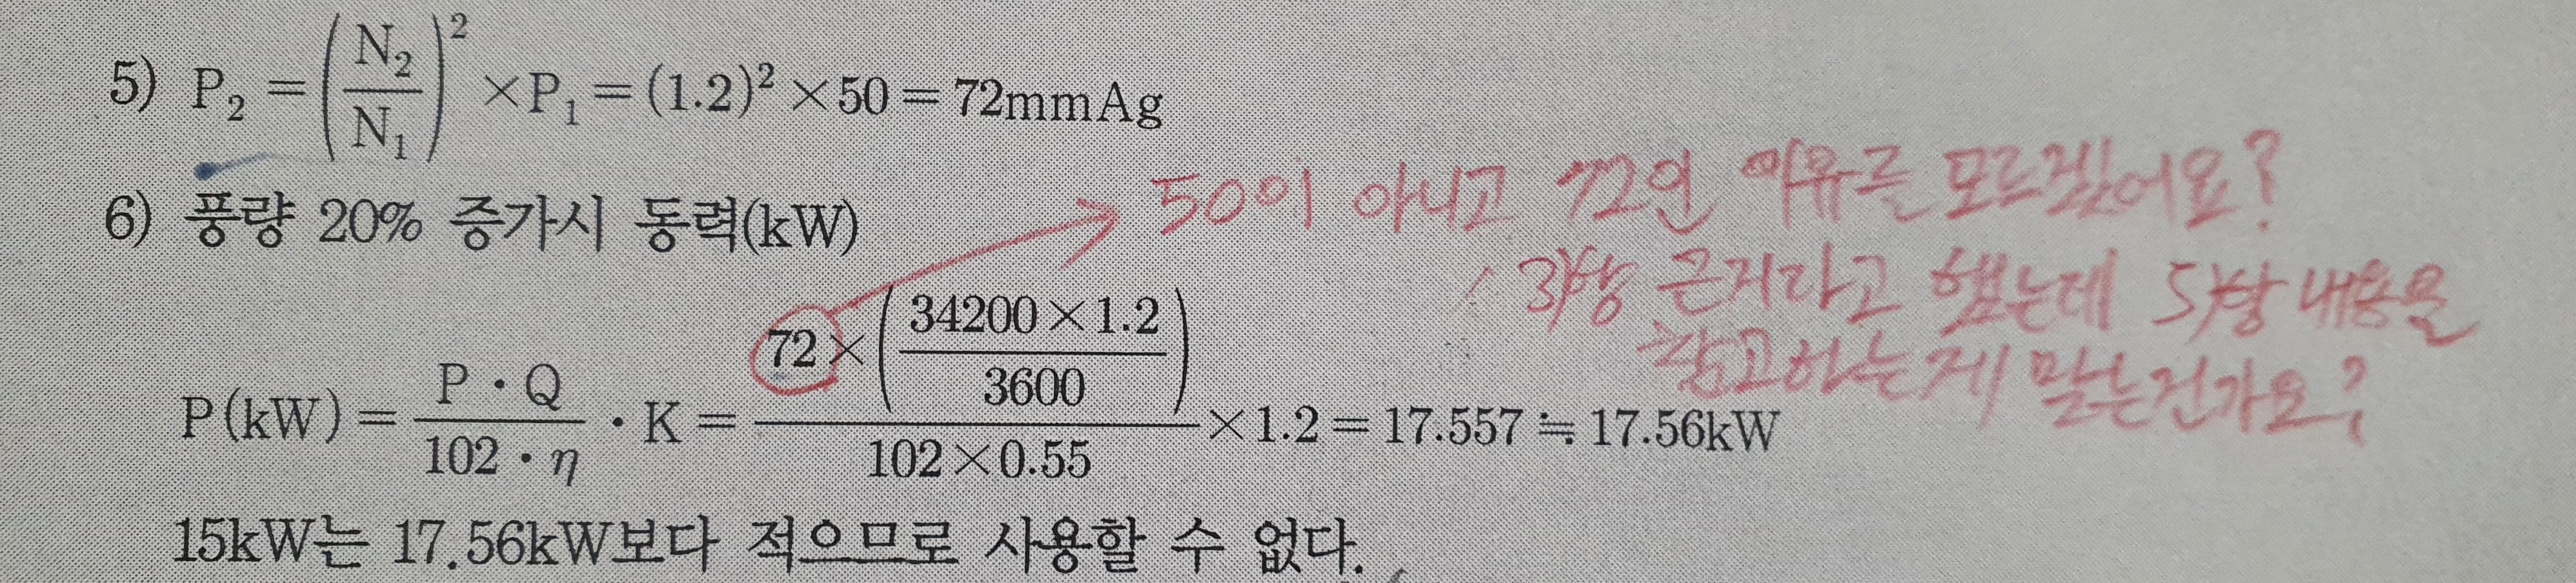 5) P₂ = (N₂/N₁)² ×P₁ = (1.2)² × 50 = 72mmAg
50이 아니고 72인 이유를 모르겠어요?
6) 풍량 20% 증가시 동력(kW)
3)항 근거라고 했는데 5)항 내용을
참고하는게 맞는건가요?
P(kW) = P · Q / 102 · η · K = 72×(34200×1.2 / 3600) / 102×0.55 ×1.2 = 17.557 ≒ 17.56kW
15kW는 17.56kW보다 적으므로 사용할 수 없다.